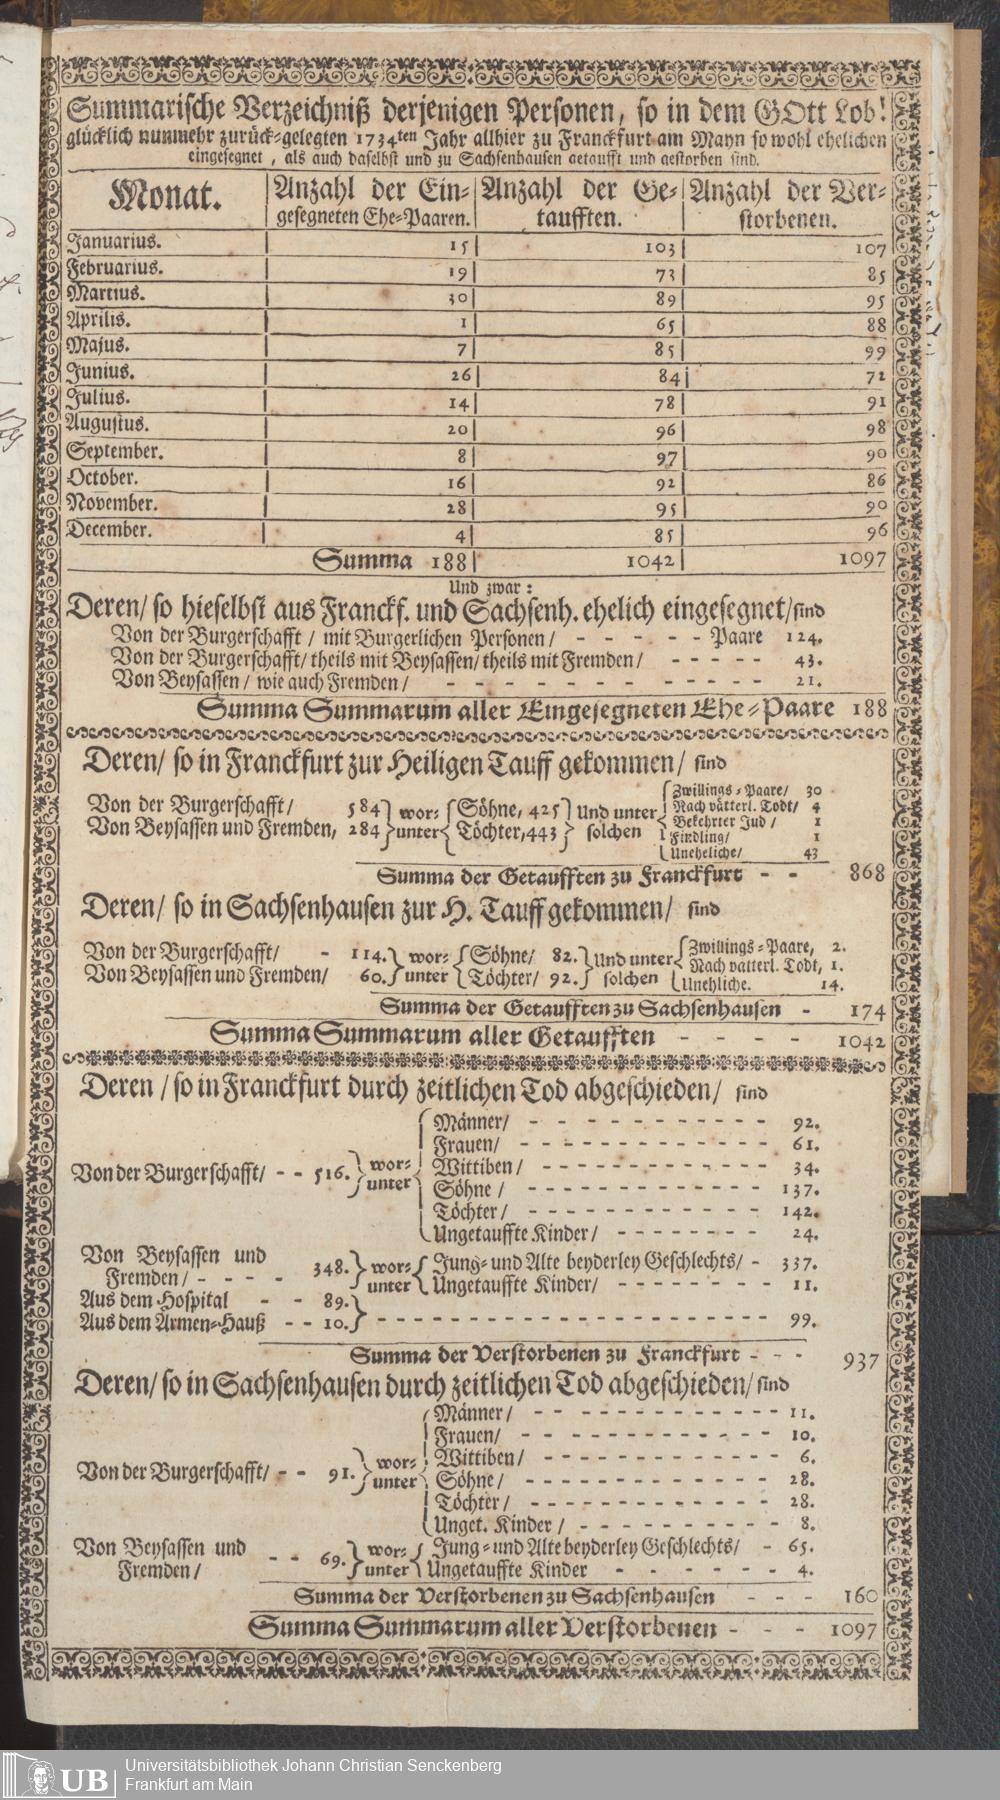 Summarische Verzeichniß derjenigen Personen, so in dem GOtt Lob!
glücklich nunmehr zurück-gelegten 1734ten Jahr allhier zu Franckfurt am Mayn so wohl ehelichen
eingesegnet, als auch daselbst und zu Sachsenhausen getaufft und gestorben sind.
Monat. Anzahl der Ein-gesegneten Ehe-Paaren. Anzahl der Ge-taufften. Anzahl der Ver-storbenen.
Januarius. 15 103 107
Februarius. 19 73 85
Martius. 30 89 95
Aprilis. 1 65 88
Majus. 7 85 99
Junius. 26 84 72
Julius. 14 78 91
Augustus. 20 96 98
September. 8 97 90
October. 16 92 86
November. 28 95 90
December. 4 85 96
Summa 188 1042 1097
Und zwar:
Deren/ so hieselbst aus Franckf. und Sachsenh. ehelich eingesegnet/ sind
Von der Burgerschafft / mit Burgerlichen Personen/ - - - - - Paare 124.
Von der Burgerschafft/ theils mit Beysassen/ theils mit Fremden/ - - - - - 43.
Von Beysassen / wie auch Fremden/ - - - - - - - - - - - - 21.
Summa Summarum aller Eingesegneten Ehe-Paare 188
Deren/ so in Franckfurt zur Heiligen Tauff gekommen/ sind
Von der Burgerschafft/ 584
Von Beysassen und Fremden, 284
wor-unter
Söhne, 425
Töchter, 443
Und unter solchen
Zwillings-Paare/ 30
Nach vätterl. Todt/ 4
Bekehrter Jud / 1
Findling/ 1
Uneheliche/ 43
Summa der Getaufften zu Franckfurt - - 868
Deren/ so in Sachsenhausen zur H. Tauff gekommen/ sind
Von der Burgerschafft/ - 114.
Von Beysassen und Fremden/ 60.
wor-unter
Söhne/ 82.
Töchter/ 92.
Und unter solchen
Zwillings-Paare, 2.
Nach vatterl. Todt, 1.
Unehliche. 14.
Summa der Getaufften zu Sachsenhausen - 174
Summa Summarum aller Getaufften - - - - 1042
Deren / so in Franckfurt durch zeitlichen Tod abgeschieden/ sind
Von der Burgerschafft/ - - 516.
wor-unter
Männer/ - - - - - - - - - - - 92.
Frauen/ - - - - - - - - - - - - 61.
Wittiben / - - - - - - - - - - - 34.
Söhne / - - - - - - - - - - - - 137.
Töchter / - - - - - - - - - - - - 142.
Ungetauffte Kinder / - - - - - - - 24.
Von Beysassen und
Fremden / - - - - 348.
wor-unter
Jung- und Alte beyderley Geschlechts/ - 337.
Ungetauffte Kinder/ - - - - - - - - 11.
Aus dem Hospital - - 89.
Aus dem Armen-Hauß - - 10.
- - - - - - - - - - - - - - - - - - - - 99.
Summa der Verstorbenen zu Franckfurt - - - 937
Deren/ so in Sachsenhausen durch zeitlichen Tod abgeschieden/ sind
Von der Burgerschafft/ - - 91.
wor-unter
Männer / - - - - - - - - - - - - 11.
Frauen/ - - - - - - - - - - - - 10.
Wittiben / - - - - - - - - - - - - 6.
Söhne / - - - - - - - - - - - - 28.
Töchter / - - - - - - - - - - - - 28.
Unget. Kinder / - - - - - - - - - - 8.
Von Beysassen und
Fremden / - - 69.
wor-unter
Jung- und Alte beyderley Geschlechts/ - 65.
Ungetauffte Kinder - - - - - - - 4.
Summa der Verstorbenen zu Sachsenhausen - - - 160
Summa Summarum aller Verstorbenen - - - 1097
UB Universitätsbibliothek Johann Christian Senckenberg
Frankfurt am Main